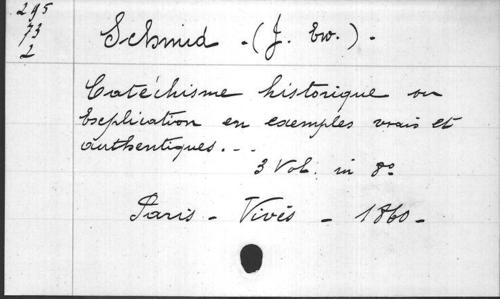 295
73
2
Schmid - (J. Ev.) -
Catéchisme historique ou
Explication en exemples vrais et
authentiques. - -
3 Vol. in 8º
Paris - Vivès - 1860 -